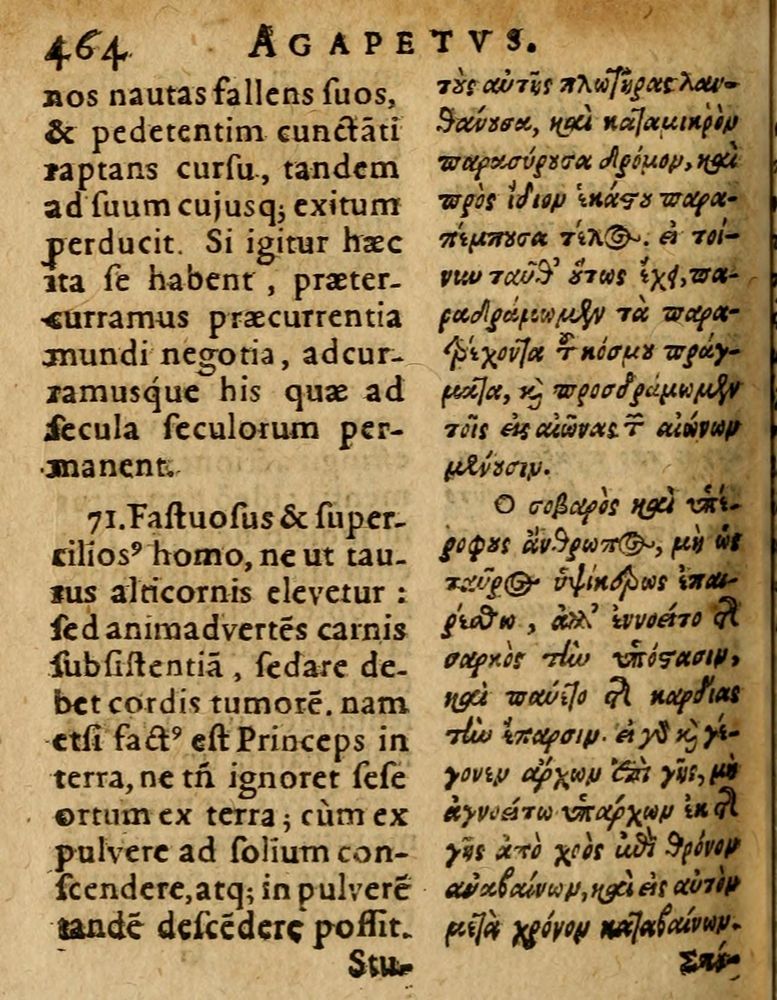 464 AGAPETVS.
nos nautas fallens ſuos,
& pedetentim cunctāti
raptans curſu, tandem
ad ſuum cujusq; exitum
perducit. Si igitur hæc
ita ſe habent, præter-
curramus præcurrentia
mundi negotia, adcur-
ramusque his quæ ad
ſecula ſeculorum per-
manent.
71. Faſtuoſus & ſuper-
cilioſꝰ homo, ne ut tau-
rus alticornis elevetur:
ſed animadvertēs carnis
ſubſiſtentiā, ſedare de-
bet cordis tumorē. nam
etſi factꝰ eſt Princeps in
terra, ne tñ ignoret ſeſe
ortum ex terra; cùm ex
pulvere ad ſolium con-
ſcendere, atq; in pulverē
tandē deſcēdere poſſit.
Stu-
τοὺς αὐτῆς πλωτῆρας λαν-
θάνουσα, καὶ καταμικρὸν
παρασύρουσα δρόμον, καὶ
πρὸς ἴδιον ἑκάστου παρα-
πέμπουσα τέλος. εἰ τοί-
νυν ταῦθ' οὕτως ἔχει, πα-
ραδράμωμεν τὰ παρα-
τρέχοντα τοῦ κόσμου πράγ-
ματα, καὶ προσδράμωμεν
τοῖς εἰς αἰῶνας τῶν αἰώνων
μένουσιν.
Ὁ σοβαρὸς καὶ ὑπέ-
ροφρυς ἄνθρωπος, μὴ ὡς
ταῦρος ὑψίκερως ἐπαι-
ρέσθω, ἀλλ' ἐννοείτο τῆς
σαρκὸς τὴν ὑπόστασιν,
καὶ παύετο τῆς καρδίας
τὴν ἔπαρσιν. εἰ γὰρ καὶ γέ-
γονεν ἄρχων ἐπὶ γῆς, μὴ
ἀγνοείτω ὑπάρχων ἐκ τῆς
γῆς ἀπὸ χοὸς ἐπὶ θρόνον
ἀναβαίνων, καὶ εἰς αὐτὸν
μετὰ χρόνον καταβαίνων.
Σπέ-